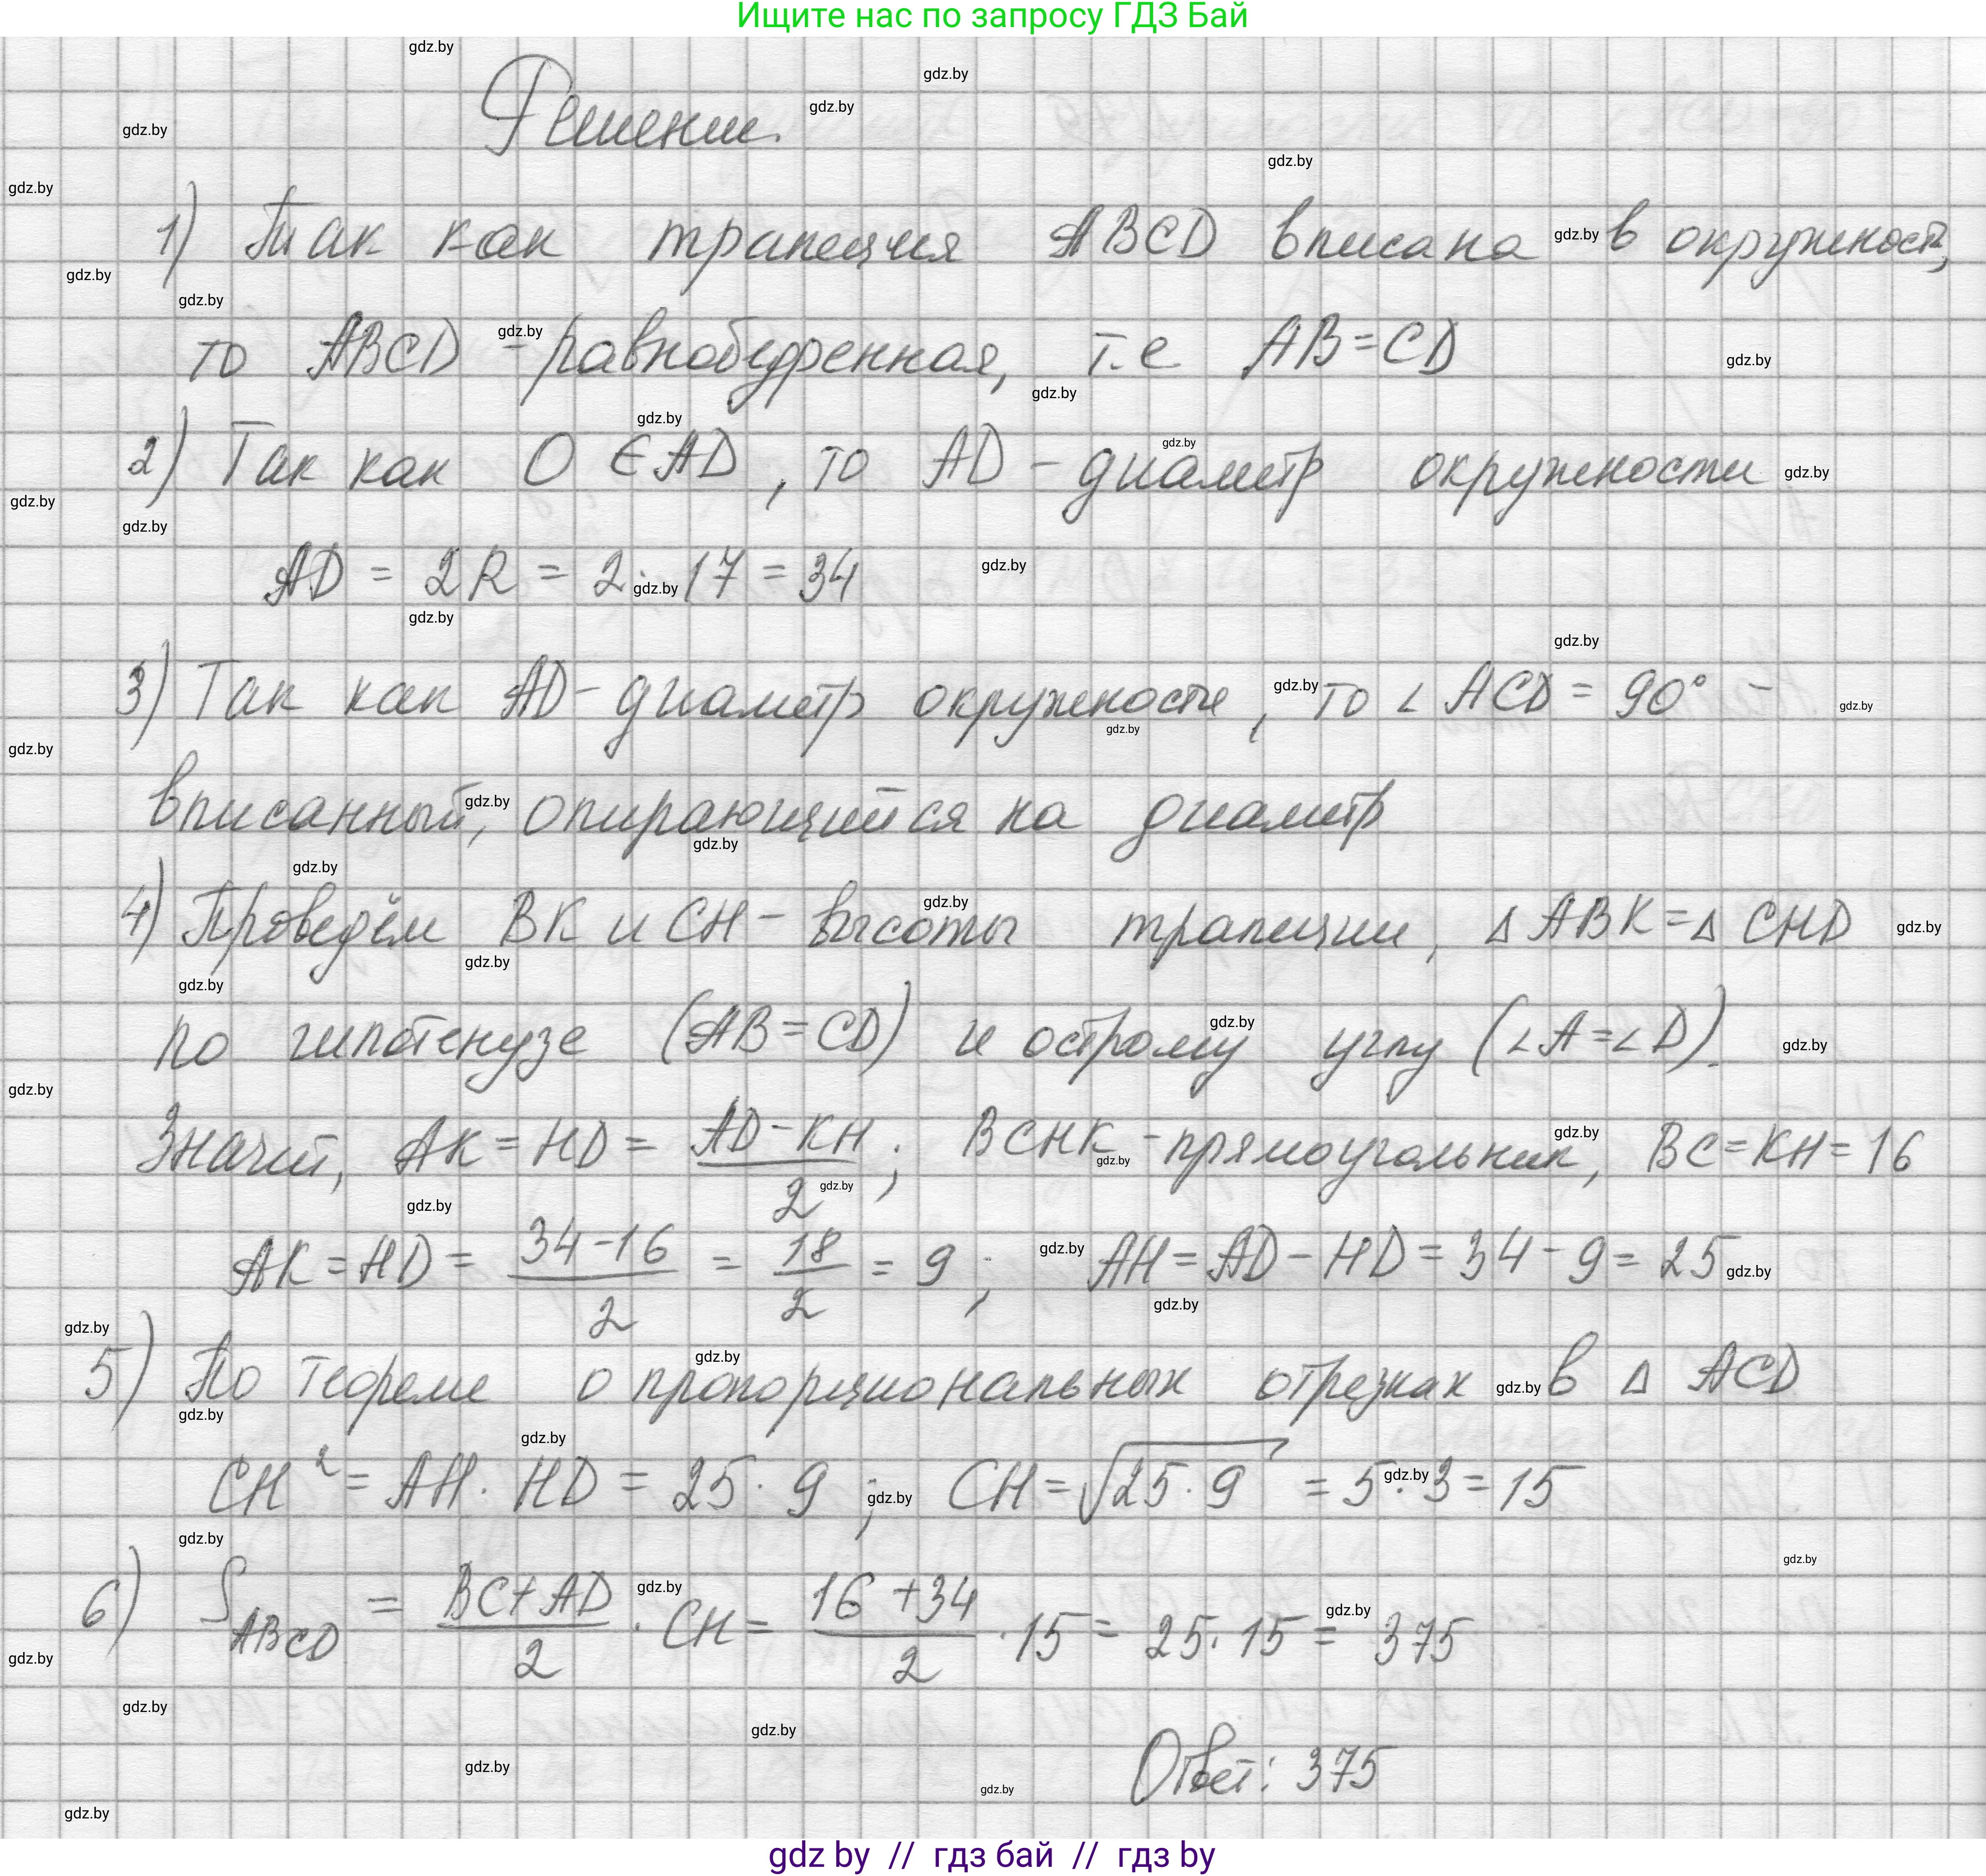 Ищите нас по запросу ГДЗ Бай
Решение.
1) Так как трапеция ABCD вписана в окружность,
то ABCD - равнобедренная, т.е AB=CD
2) Так как O ∈ AD, то AD - диаметр окружности
AD = 2R = 2 · 17 = 34
3) Так как AD - диаметр окружности, то ∠ ACD = 90° -
вписанный, опирающийся на диаметр
4) Проведём BK и CH - высоты трапеции, Δ ABK = Δ CHD
по гипотенузе (AB = CD) и острому углу (∠A = ∠D).
Значит, AK = HD = (AD - KH)/2; BCHK - прямоугольник, BC = KH = 16
AK = HD = (34-16)/2 = 18/2 = 9; AH = AD - HD = 34 - 9 = 25
5) По теореме о пропорциональных отрезках в Δ ACD
CH² = AH · HD = 25 · 9; CH = √(25 · 9) = 5 · 3 = 15
6) S_ABCD = (BC + AD)/2 · CH = (16 + 34)/2 · 15 = 25 · 15 = 375
Ответ: 375
gdz by // гдз бай // гдз by